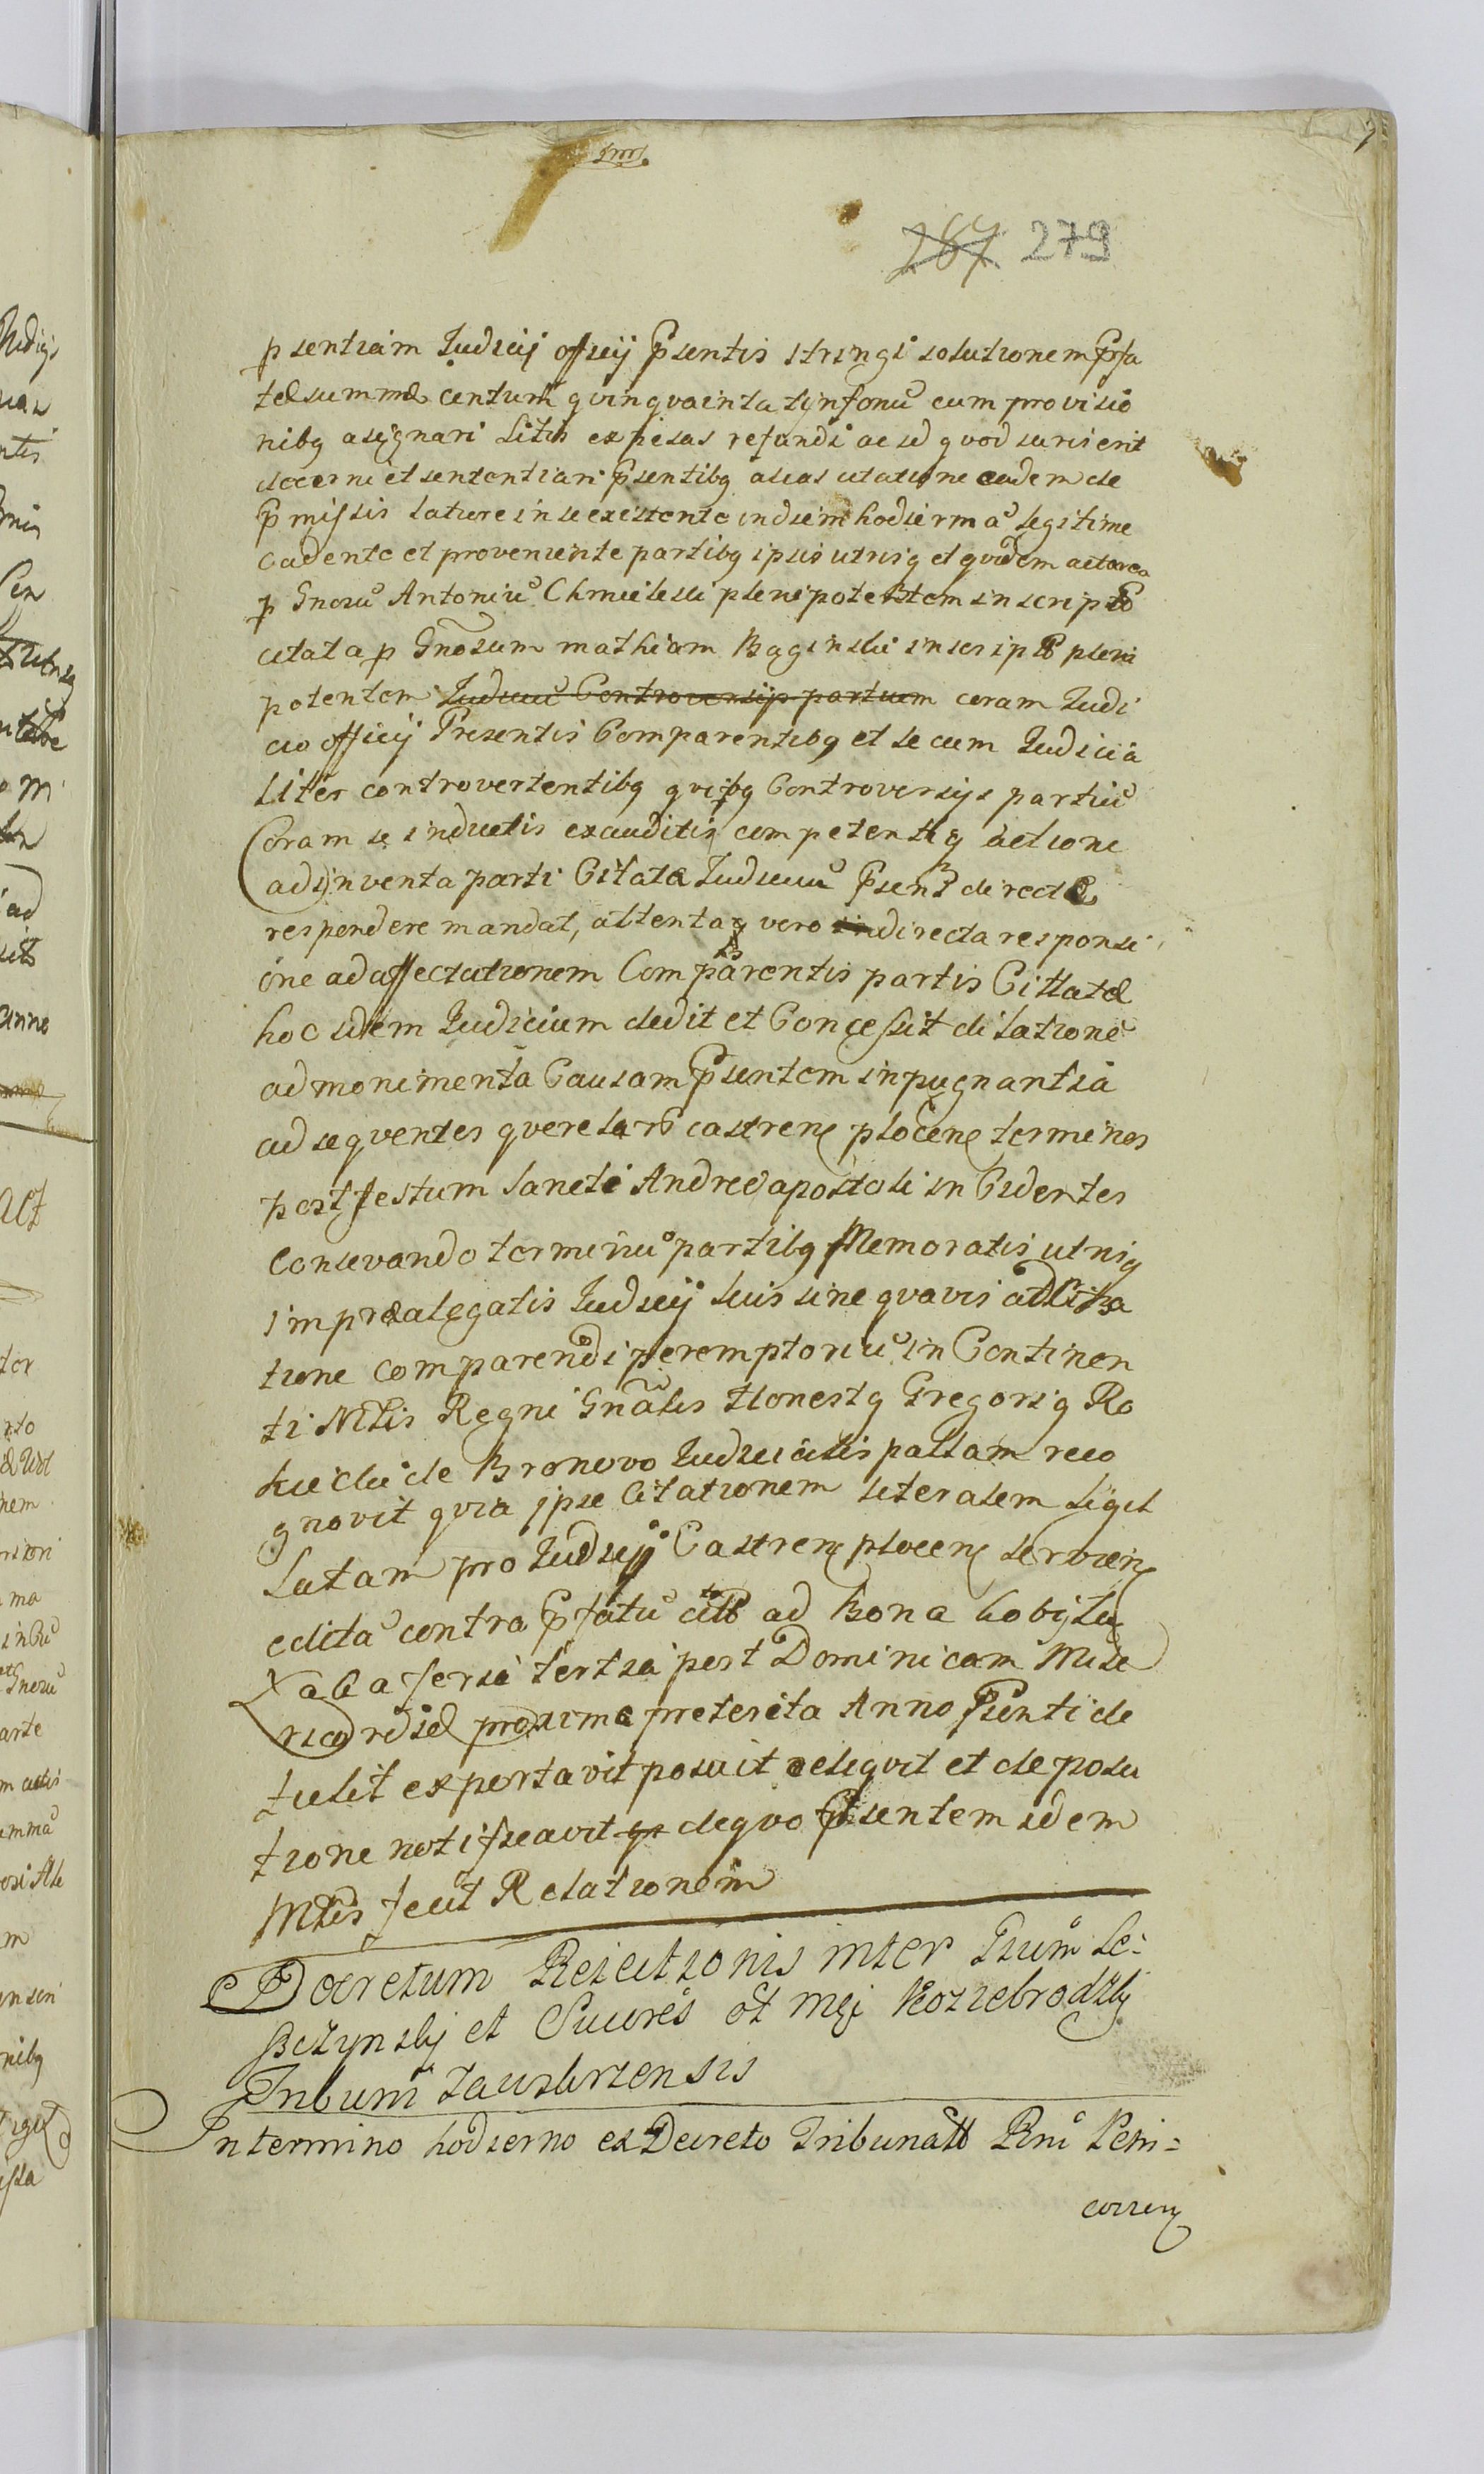 287 279
psentiam Judicij officij Psentis stringi solutionem Prfa
tæ summæ centum qvinqvainta tynfonu cum provisio
nibq asignari Litis expesas refundi ac id qvod iuris erit
decerni et sententiari Psentibq alias citatione eadem de
Pmissis latiore in se existente in diem hodierna legitime
cadente et proveniente partibq ipsis utrisq et qvidem actorea
p Gnosu Antoniu Chmieleski plenipotentem inscripto
citata p Gnosum mathiam Bąginski inscripto pleni
potentem Judiciu Controversijs partium coram Judi
cio officij Presentis Comparentibq et se cum Judicia
liter controvertentibq qvibq Controversijs partiu
Coram se inductis exauditis competentiq actione
adinventa parti Citatæ Judiciu Psens directe
respondere mandat, attentaq vero in directa responsi
one ad affectationem Comparentis partis Cittatæ
hoc idem Judicium dedit et Concessit dilatione
ad monimenta Causam Psentem inpugnantia
ad seqventes qverelaru castren plocen terminos
post festum Sancti Andreæ apostoli in Cidentes
Consevando terminu partibq Memoratis utrisq
impræalegatis Judicij suis sine qvavis adcita
tione comparendi peremptoriu in Continen
ti Mtlis Regni Gnalis Honestq Gregoriq Ro
kicki de Bronovo Judicialis pallam reco
gnovit qvia ipse Citationem literalem Sigil
latam pro Judicij Castren plocen servien
edita contra Pfatu citto ad Bona Kobijla
Łaka feria tertia post Dominicam Mise
ricordiæ proxime preterita Anno Psenti de
tulit exportavit posuit reliqvit et de posi
tione notificavit de qvo Psentem idem
Mtlis fecit Relationem
Decretum Reiectionis inter Grum Le-
szczynskj et Succres et Mgi Koziebrodzkj
Tribuni Zauskrzensis
In termino hodierno ex Decreto Tribunalt Rni Petri=
covien